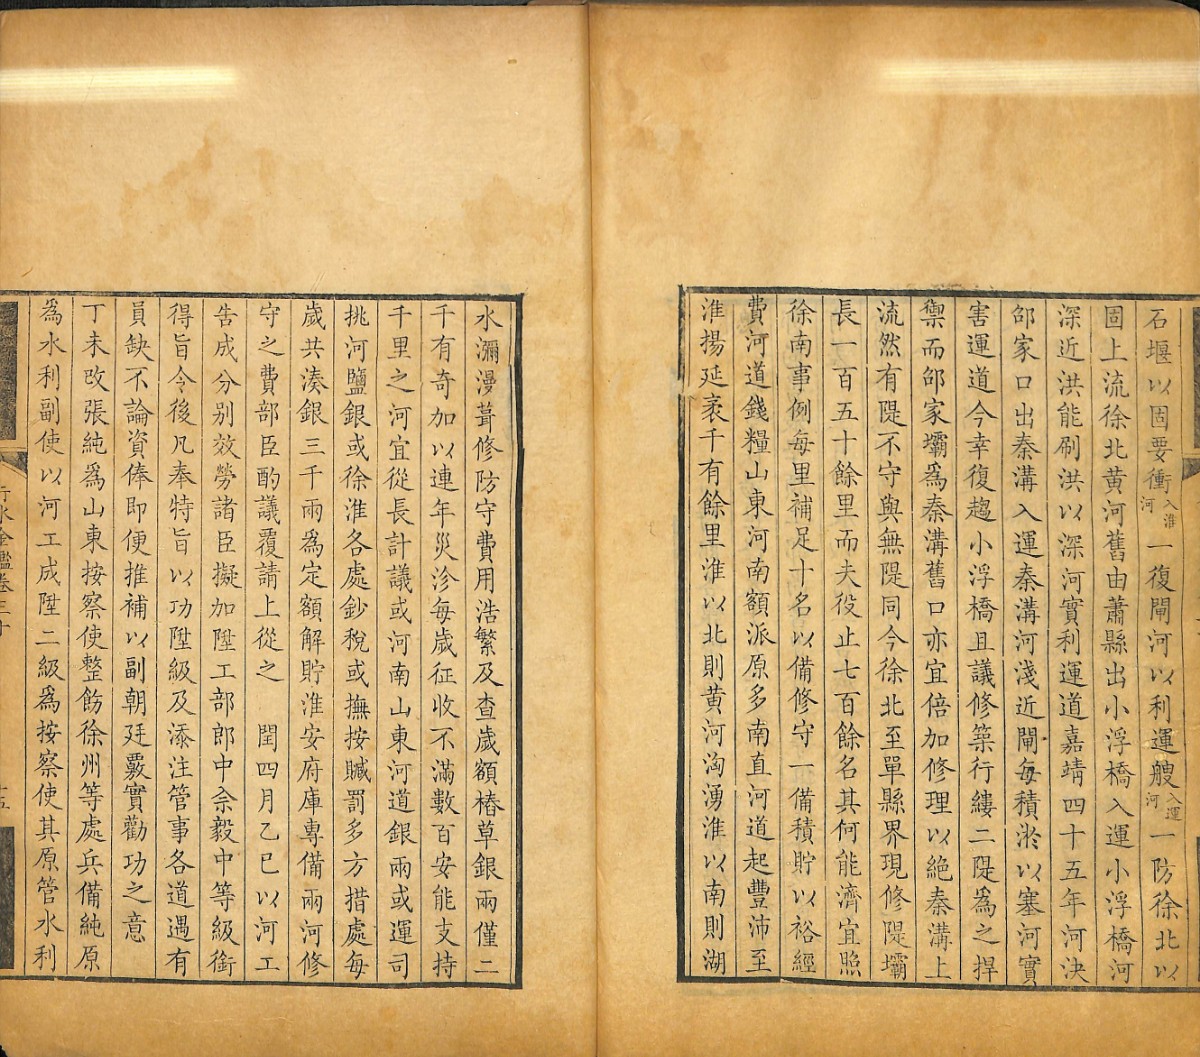 石堰以固要衝入淮河一復閘河以利運艘入運河一防徐北以
固上流徐北黄河舊由蕭縣出小浮橋入運小浮橋河
深近洪能刷洪以深河實利運道嘉靖四十五年河決
邵家口出秦溝入運秦溝河淺近閘每積淤以塞河實
害運道今幸復趨小浮橋且議修築行縷二隄爲之捍
禦而邵家壩爲秦溝舊口亦宜倍加修理以絶秦溝上
流然有隄不守與無隄同今徐北至單縣界現修隄壩
長一百五十餘里而夫役止七百餘名其何能濟宜照
徐南事例每里補足十名以備修守一備積貯以裕經
費河道錢糧山東河南額派原多南直河道起豐沛至
淮揚延袤千有餘里淮以北則黄河洶湧淮以南則湖
水瀰漫葺修防守費用浩繁及查歲額椿草銀兩僅二
千有奇加以連年災沴每歲征收不滿數百安能支持
千里之河宜從長計議或河南山東河道銀兩或運司
挑河鹽銀或徐淮各處鈔稅或撫按贓罰多方措處每
歲共湊銀三千兩爲定額解貯淮安府庫專備兩河修
守之費部臣酌議覆請上從之　閏四月乙巳以河工
告成分别效勞諸臣擬加陞工部郎中佘毅中等級銜
得旨今後凡奉特旨以功陞級及添注管事各道遇有
員缺不論資俸即便推補以副朝廷覈實勸功之意
丁未改張純爲山東按察使整飭徐州等處兵備純原
爲水利副使以河工成陞二級爲按察使其原管水利
行水金鑑卷三十